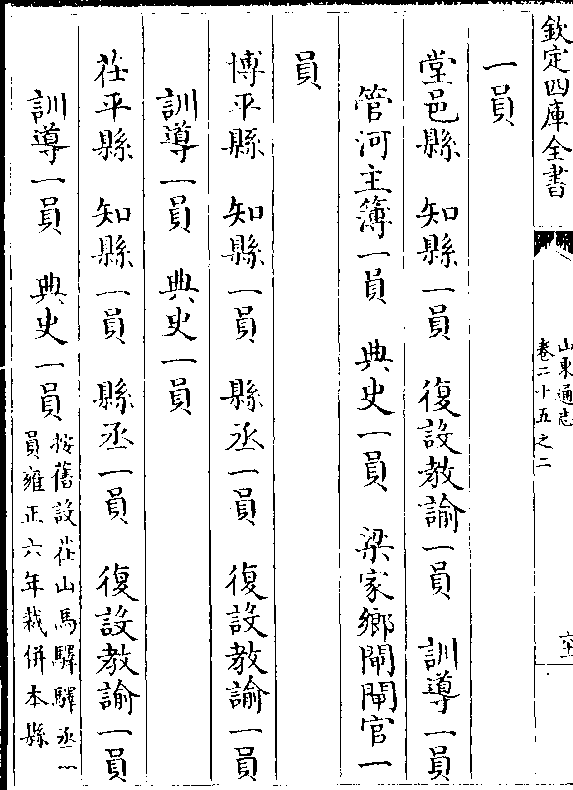 欽定四庫全書
山東通志
卷二十五之二
一員
堂邑縣 知縣一員 復設教諭一員 訓導一員
管河主簿一員 典史一員 梁家鄉閘閘官一
員
博平縣 知縣一員 縣丞一員 復設教諭一員
訓導一員 典史一員
茌平縣 知縣一員 縣丞一員 復設教諭一員
訓導一員 典史一員 按舊設茌山馬驛驛丞一
員雍正六年裁併本縣